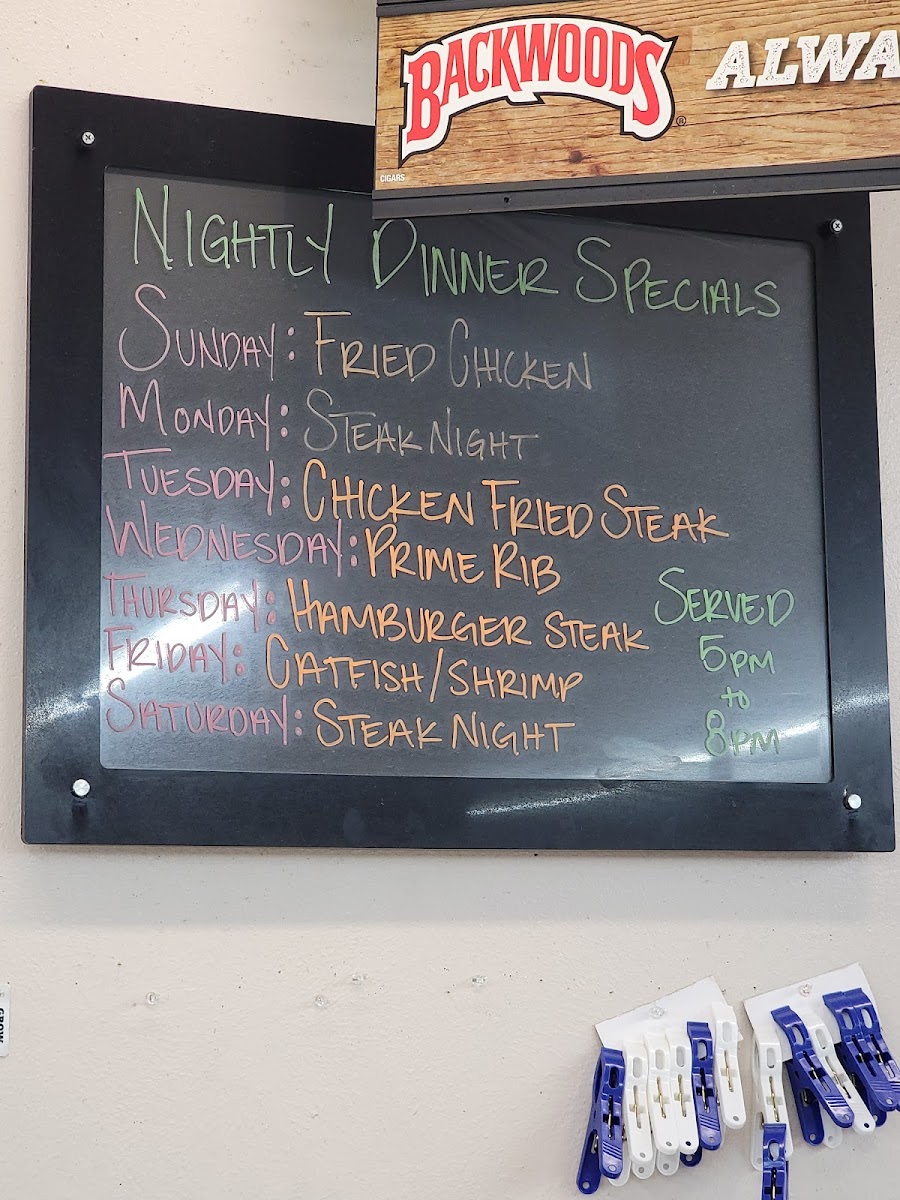 BACKWOODS®
ALWA
CIGARS
NIGHTLY DINNER SPECIALS
SUNDAY: FRIED CHICKEN
MONDAY: STEAK NIGHT
TUESDAY: CHICKEN FRIED STEAK
WEDNESDAY: PRIME RIB
THURSDAY: HAMBURGER STEAK
FRIDAY: CATFISH/SHRIMP
SATURDAY: STEAK NIGHT
SERVED
5PM
to
8PM